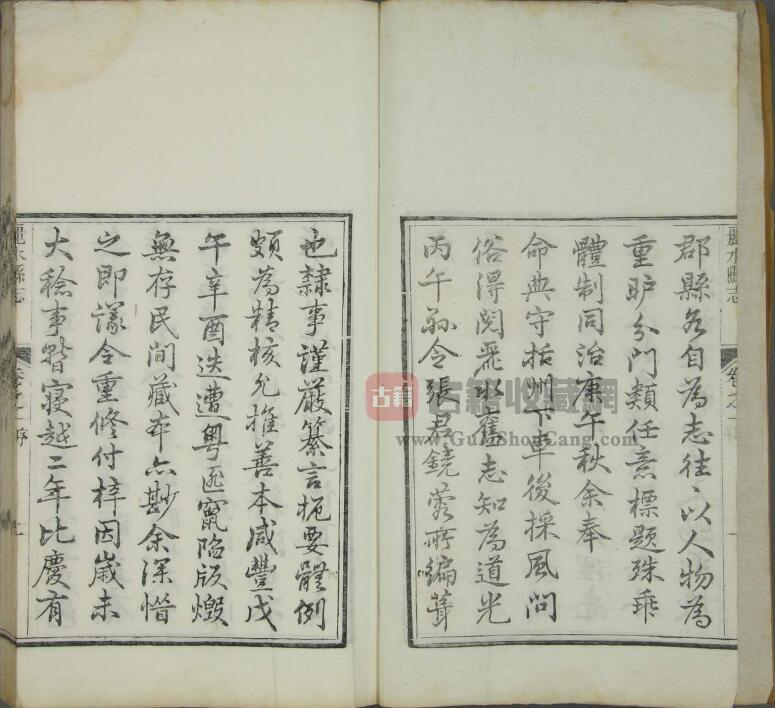 郡縣各自為志往〻以人物為
重眎分門類任意標題殊乖
體制同治庚午秋余奉
命典守括州下車後採風問
俗得閱麗水舊志知為道光
丙午孫令張君銑蓉所編葺
麗水縣志
卷之
序
一
也隸事謹嚴纂言扼要體例
頗為精核允推善本咸豐戊
午辛酉迭遭粵匪竄陷版燬
無存民間藏本亦尠余深惜
之即議令重修付梓因歲未
大稔事暫寢越二年比慶有
麗水縣志
卷之
序
古籍
古籍收藏網
www.GuJiShouCang.com